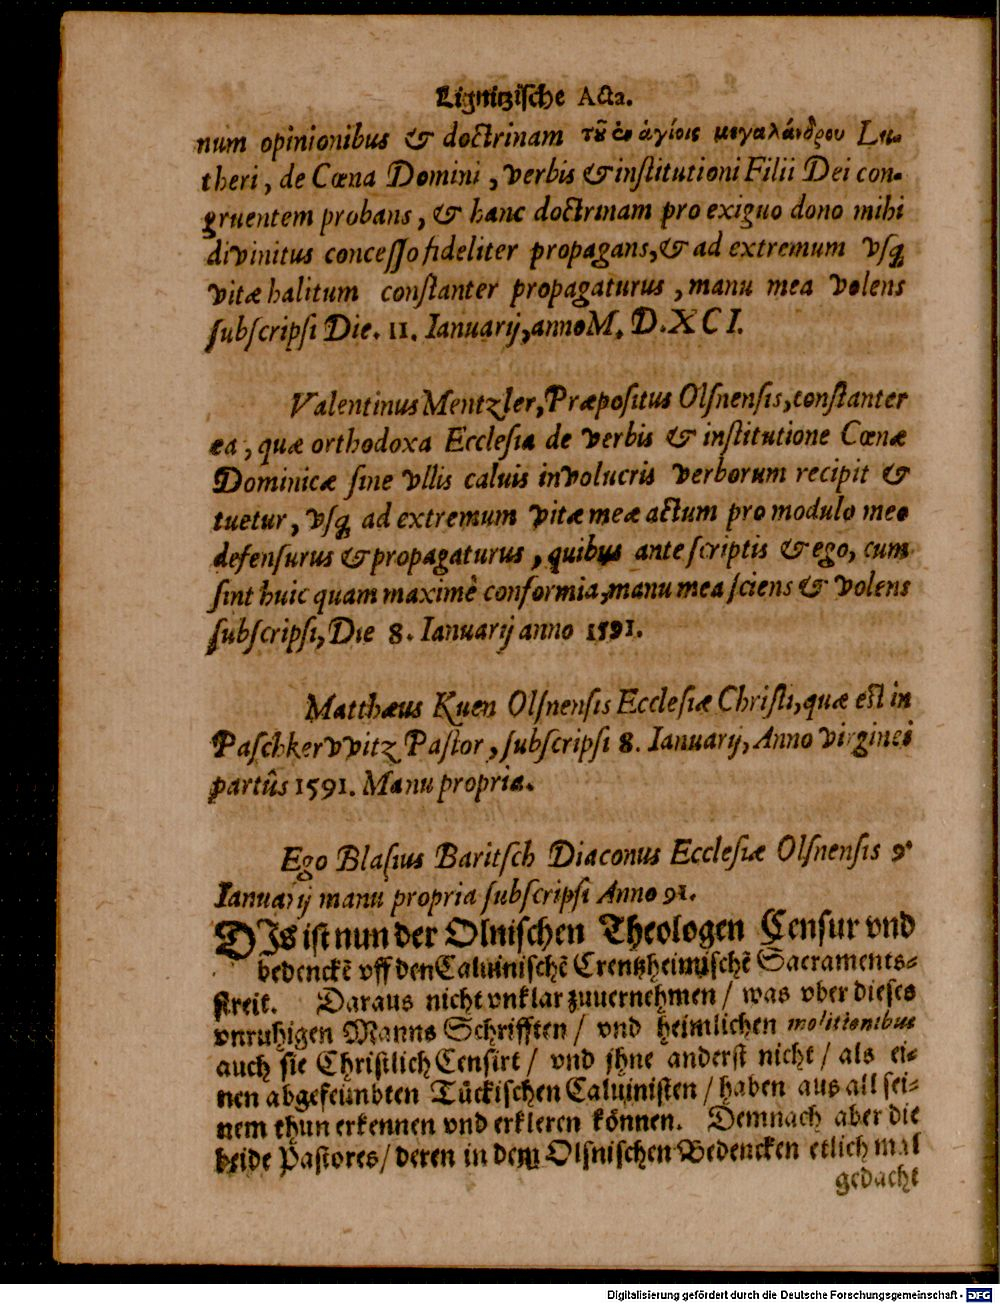 Lignitzische Acta.
num opinionibus & doctrinam τοῦ ἐν ἁγίοις μεγαλάνδρου Lu-
theri, de Cœna Domini, verbis & institutioni Filii Dei con-
gruentem probans, & hanc doctrinam pro exiguo dono mihi
divinitus concesso fideliter propagans, & ad extremum vsq;
vitæ halitum constanter propagaturus, manu mea volens
subscripsi Die. 11. Ianuarij, anno M. D. XCI.
Valentinus Mentzler, Præpositus Olsnensis, constanter
ea, quæ orthodoxa Ecclesia de verbis & institutione Cœnæ
Dominicæ sine vllis caluis involucris verborum recipit &
tuetur, vsq; ad extremum vitæ meæ actum pro modulo meo
defensurus & propagaturus, quibus ante scriptis & ego, cum
sint huic quam maximè conformia, manu mea sciens & volens
subscripsi, Die 8. Ianuarij anno 1591.
Matthæus Kuen Olsnensis Ecclesiæ Christi, quæ est in
Paschkervvitz Pastor, subscripsi 8. Ianuarij, Anno virginei
partûs 1591. Manu propria.
Ego Blasius Baritsch Diaconus Ecclesiæ Olsnensis 9.
Ianuarij manu propria subscripsi Anno 91.
DJs ist nun der Olnischen Theologen Censur vnd
bedenckē vff den Caluinischē Crentzheimischē Sacraments-
streit. Daraus nicht vnklar zuuernehmen / was vber dieses
vnruhigen Manns Schrifften / vnd heimlichen molitionibus
auch sie Christlich Censirt / vnd jhne anderst nicht / als ei-
nen abgefeimbten Tückischen Caluinisten / haben aus all sei-
nem thun erkennen vnd erkleren können. Demnach aber die
beide Pastores / deren in dem Olsnischen Bedencken etlich mal
gedacht
Digitalisierung gefördert durch die Deutsche Forschungsgemeinschaft - DFG